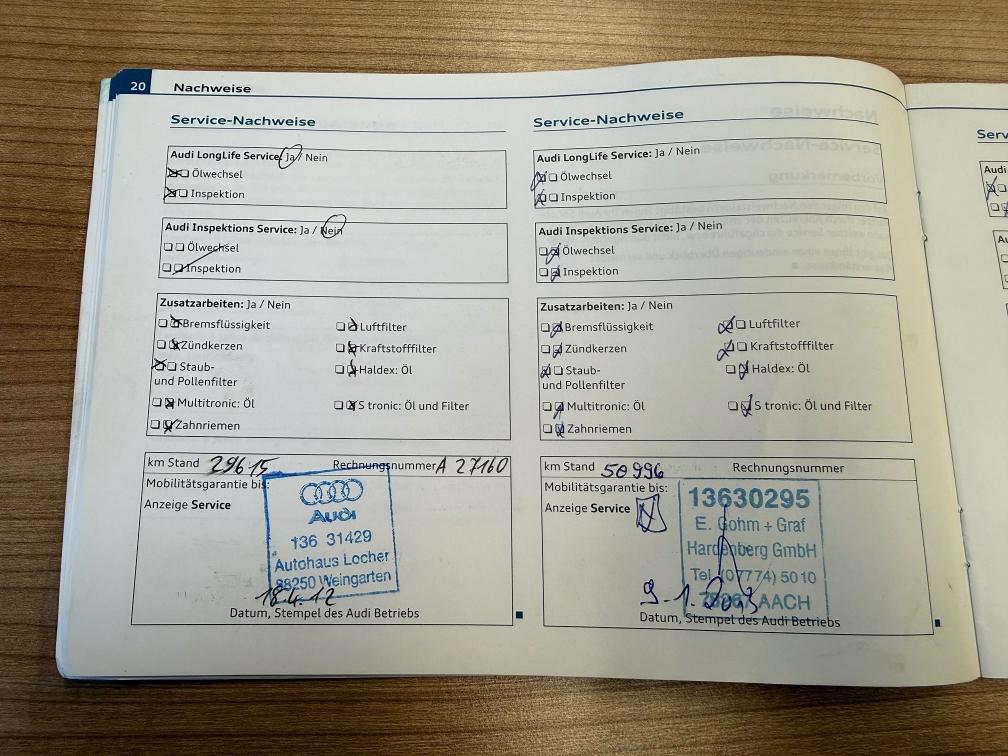 20
Nachweise
Service-Nachweise
Audi LongLife Service: Ja / Nein
Ölwechsel
Inspektion
Audi Inspektions Service: Ja / Nein
Ölwechsel
Inspektion
Zusatzarbeiten: Ja / Nein
Bremsflüssigkeit
Luftfilter
Zündkerzen
Kraftstofffilter
Staub-
und Pollenfilter
Haldex: Öl
Multitronic: Öl
S tronic: Öl und Filter
Zahnriemen
km Stand 29615 Rechnungsnummer A 27160
Mobilitätsgarantie bis:
Anzeige Service
Audi
136 31429
Autohaus Locher
88250 Weingarten
18.4.12
Datum, Stempel des Audi Betriebs
Service-Nachweise
Audi LongLife Service: Ja / Nein
Ölwechsel
Inspektion
Audi Inspektions Service: Ja / Nein
Ölwechsel
Inspektion
Zusatzarbeiten: Ja / Nein
Bremsflüssigkeit
Luftfilter
Zündkerzen
Kraftstofffilter
Staub-
und Pollenfilter
Haldex: Öl
Multitronic: Öl
S tronic: Öl und Filter
Zahnriemen
km Stand 50996 Rechnungsnummer
Mobilitätsgarantie bis:
Anzeige Service
13630295
E. Gohm + Graf
Hardenberg GmbH
Tel. (07774) 5010
AACH
9.1.2013
Datum, Stempel des Audi Betriebs
Serv
Audi